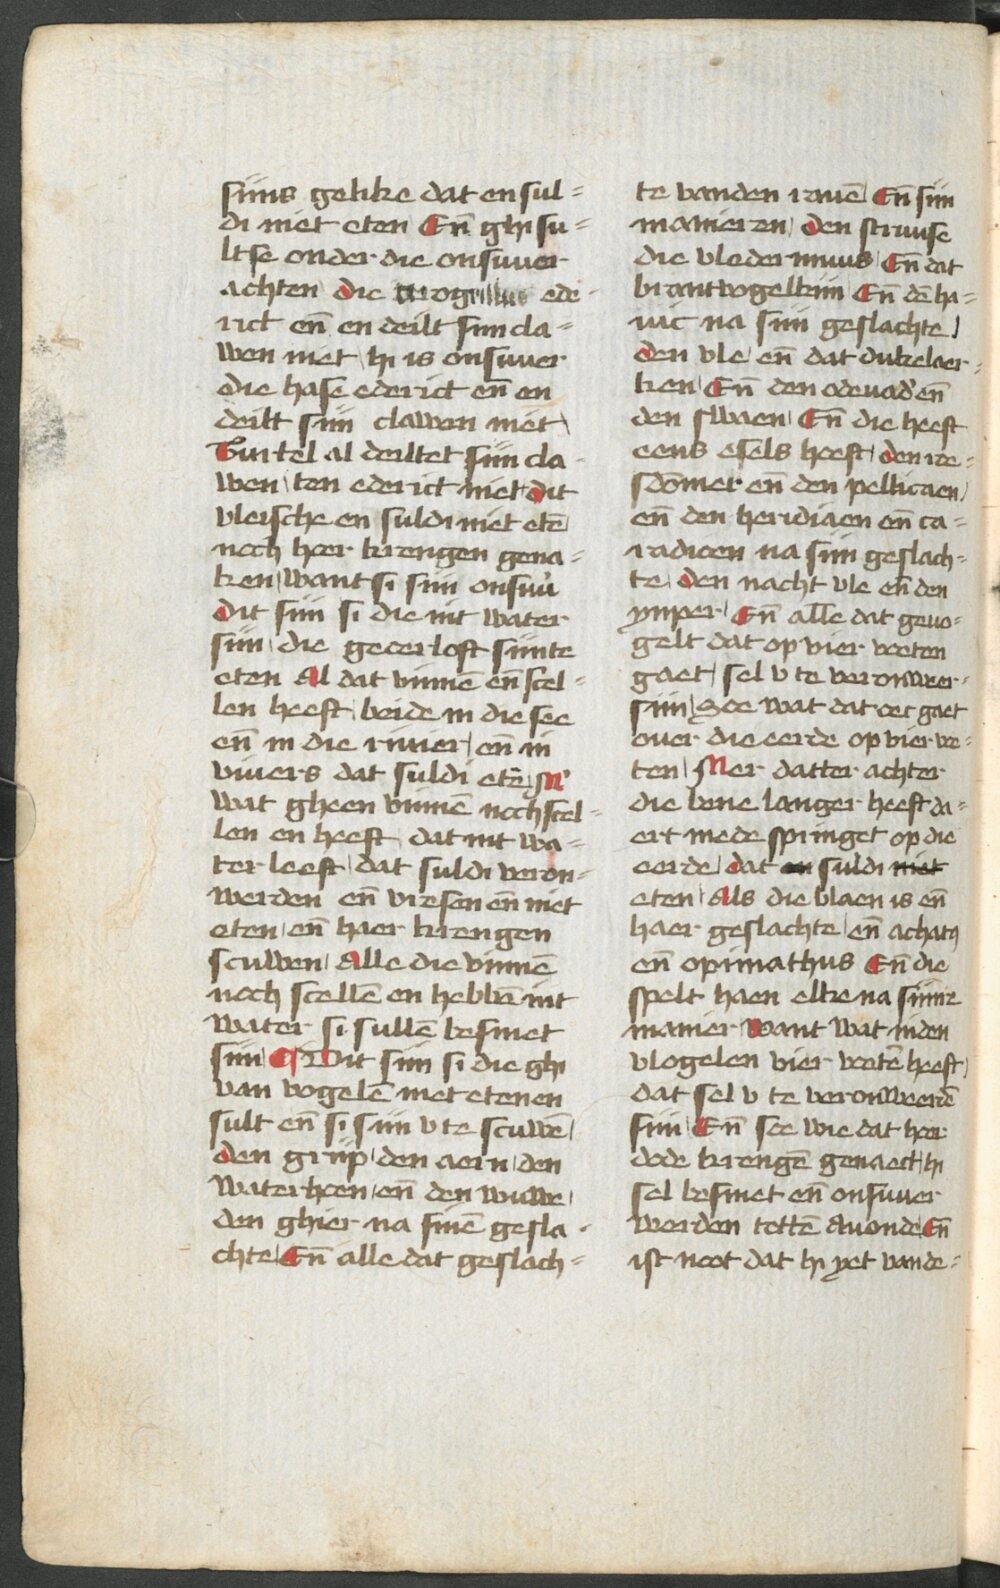 sijns gelike dat en sul-
di niet eten En̄ ghi su-
ltse onder die onsuuer
achten die cirogrillus ede-
rict en̄ en deilt sijn cla-
wen niet hi is onsuuer
die hase ederict en̄ en
deilt sijn clawen niet
Turtel al deiltet sijn cla-
wen ten ederict niet dit
vleische en suldi niet etē
noch hoer krengen gena-
ken want si sijn onsuu̓
Dit sijn si die int water
sijn die georloft sijn te
eten Al dat vinnē en̄ scel-
len heeft beide in die see
en̄ in die riuier en̄ in
viuers dat suldi etē M̓
wat gheen vinnē noch scel-
len en heeft dat int wa-
ter leeft dat suldi veron-
werden en̄ vresen en̄ niet
eten en̄ haer krengen
scuwen Alle die vinnē
noch scellē en hebbē int
water si sullē besmet
sijn ¶ Dit sijn si die ghi
van vogelē niet eten en
sult en̄ si sijn v te scuwē
den grijp den aern den
waterhoen en̄ den wuwe
den ghier na sinē gesla-
chte En̄ alle dat geslach-
te vanden rauē En̄ sijn
manieren den struuse
die vledermuus En̄ dat
brantvogelkijn En̄ dē ha-
uic na sijn geslachte
den vle en̄ dat dukelaer-
ken En̄ den odeuad̓ en̄
den swaen En̄ die heeft
eens esels hoeft den roe-
sdomer en̄ den pellicaen
en̄ den heridiaen en̄ ca-
radioen na sijn geslach-
te den nacht vle en̄ den
ymper En̄ alle dat geuo-
gelt dat op vier voeten
gaet sel v te veronweer-
sijn Soe wat dat oec gaet
ouer die eerde op vier voe-
ten Mer datter achter
die bene langer heeft da-
ert mede springet op die
eerde dat en suldi niet
eten Als die blaen is en̄
haer geslachte en̄ achatꝯ
en̄ opimathus En̄ die
spelt haen elke na sijnre
manier Want wat inden
vlogelen vier voetē heeft
dat sel v te veronweerdē
sijn En̄ soe wie dat hoer
dode krengē genaect hi
sel besmet en̄ onsuuer
werden tottē Auonde En̄
ist noot dat hi yet van de-